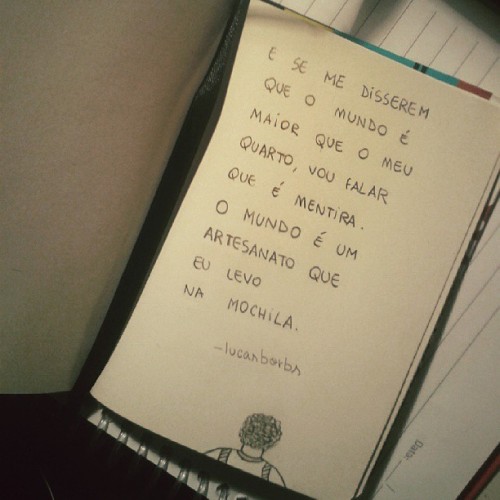 E SE ME DISSEREM
QUE O MUNDO É
MAIOR QUE O MEU
QUARTO, VOU FALAR
QUE É MENTIRA.
O MUNDO É UM
ARTESANATO QUE
EU LEVO
NA MOCHILA.
-lucasborbs